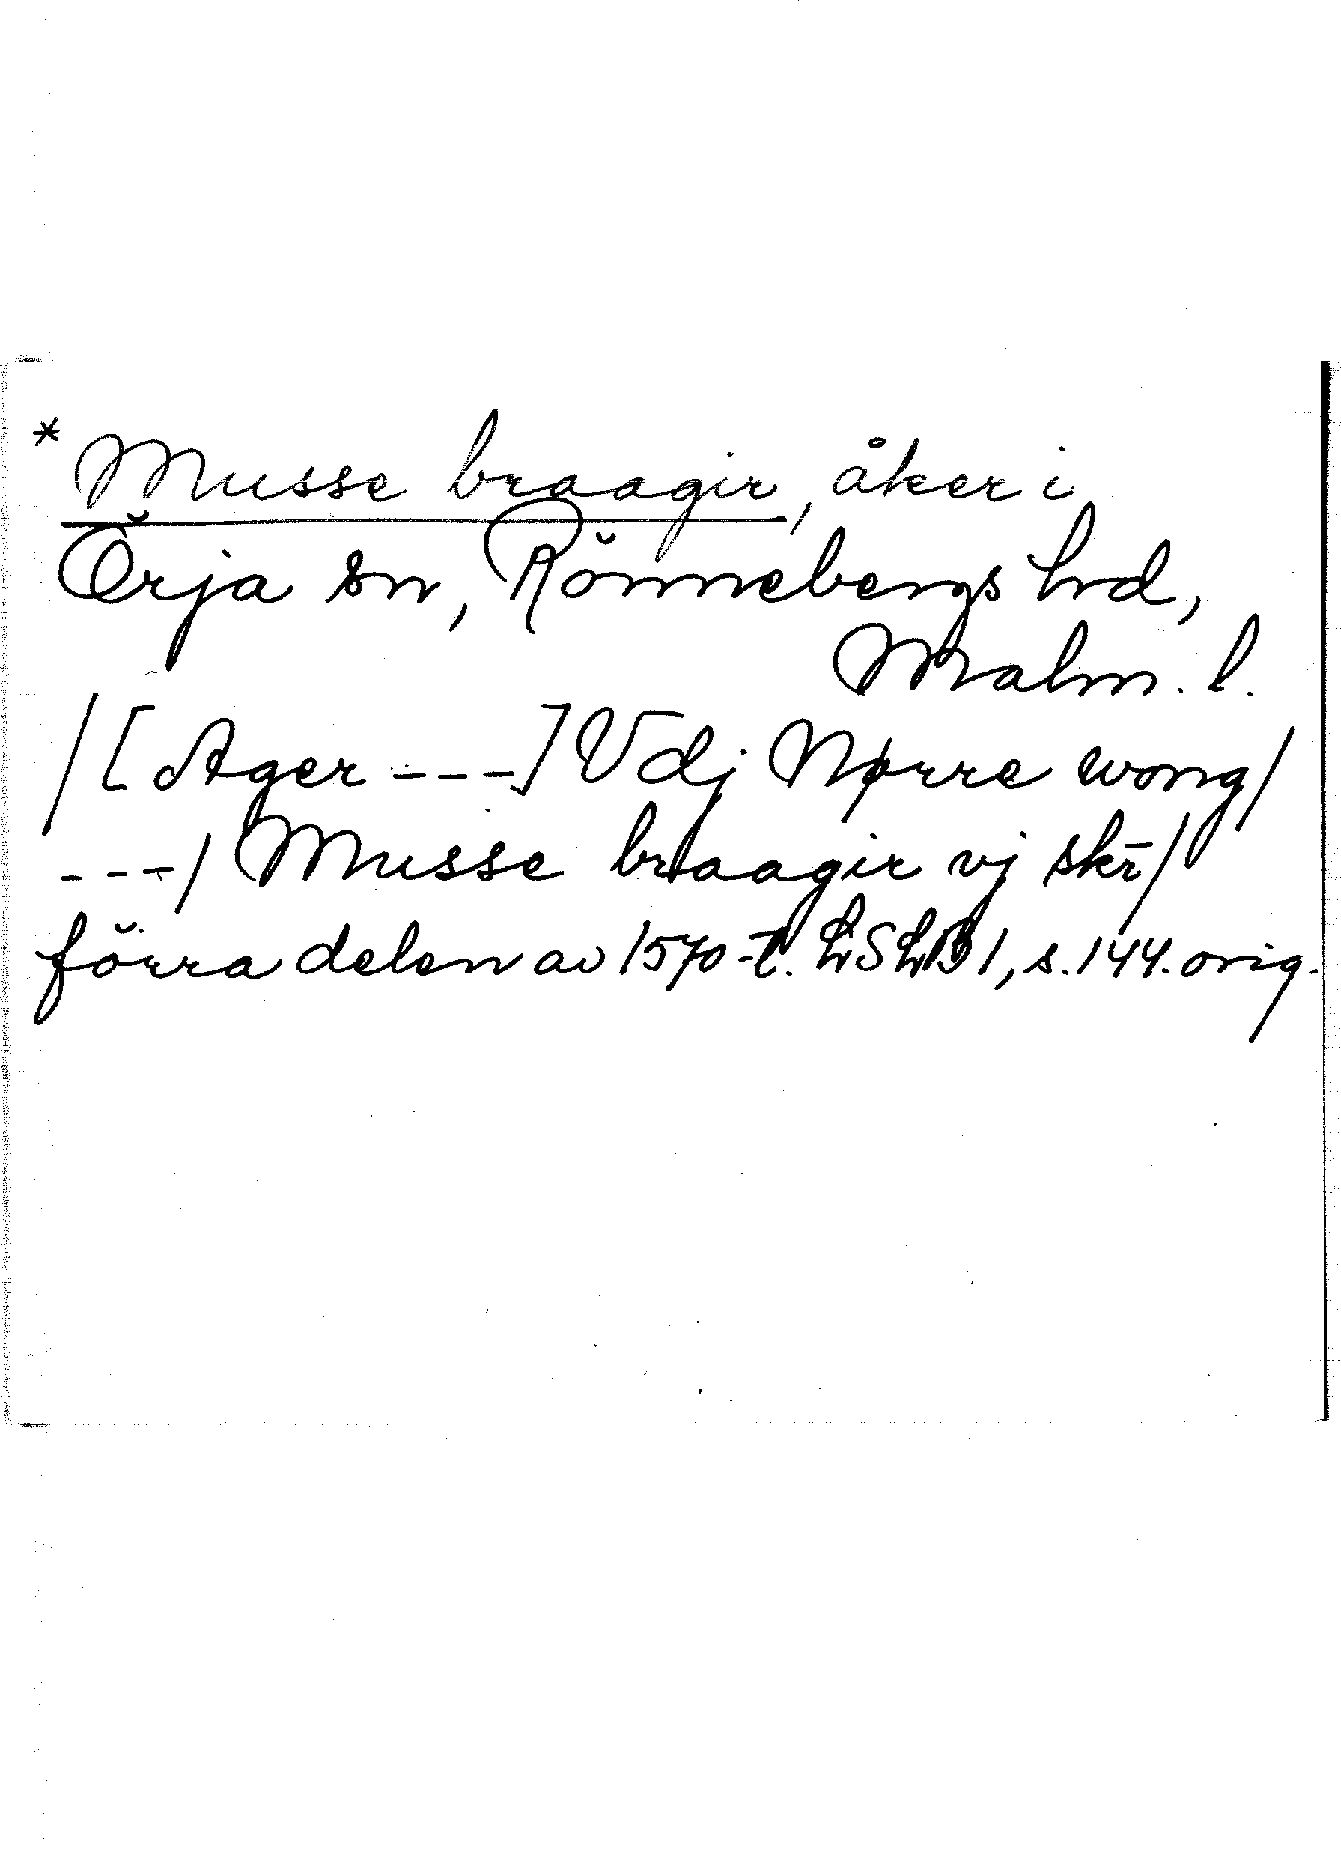 * Musse braagir, åker i
Örja sn, Rönnebergs hrd,
Malm. l.
/[Ager ---] Vdj Nørre wong/
---/ Musse braagir vj skr̄/
förra delen av 1570-t. LSLB 1, s. 144. orig.